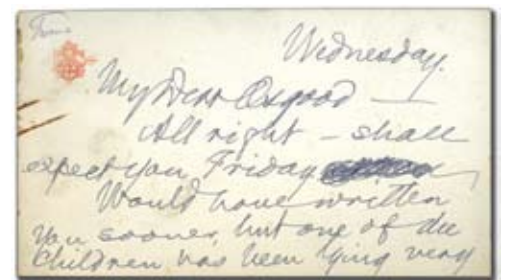 Wednesday.
My Dear Osgood —
All right – shall
expect you Friday
Would have written
you sooner, but one of the
children has been lying very